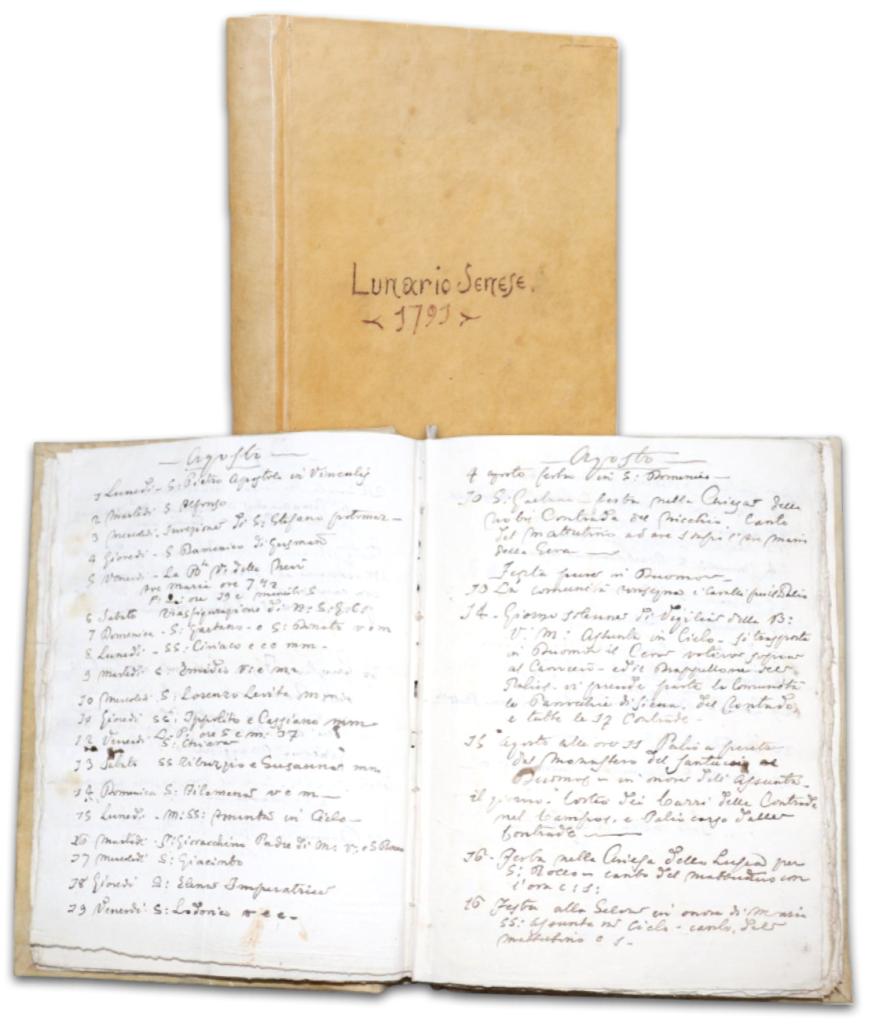 Lunario Senese.
1791
Agosto
1 Lunedì - S: Pietro Apostolo in Vinculis
2 Martedì S Alfonso
3 Mercoledì Invezione di S: Stefano protomar
4 Giovedì - S Domenico di Gusman
5 Venerdì - La della Neve
Ave Maria ore 7 1/2
ore 19 e minuti 5
6 Sabato Trasfigurazione di N: S:
7 Domenica - S: Gaetano - e S: Donato v e m
8 Lunedì - SS: Ciriaco e cc mm -
9 Martedì S Emidio v: e m
10 S: Lorenzo Levita
Giovedì SS: Ippolito e Cassiano mm
12 Venerdì ore 5 e m: 37
S: Chiara
13 Sabato SS Tiburzio e Susanna mm
14 Domenica S: Filomena v e m -
15 Lunedì - M: SS: Assunta in Cielo -
16 Martedì S: Gioacchino Padre di M: V: e S Rocco
17 S: Giacinto
18 Giovedì S: Elena Imperatrice
Venerdì S: Lodovico
Agosto
4 agosto festa in S: Domenico -
10 S: Gaetano festa nella Chiesa della
nobil Contrada del Nicchio. Canto
del mattutino ad ore Ave Maria
della Sera
Festa pure in Duomo -
La comunità consegna i cavalli
14 - Giorno solenne di Vigilia della B:
V: M: Assunta in Cielo - si trasporta
in Duomo il Cero votivo sopra
al Carroccio - ed il Drappellone del
Palio - vi prende parte la Comunità
le Parrocchie di Siena, del Contado,
e tutte le 17 Contrade -
15 agosto alle ore 11 Palio a
dal Monastero del Santuccio al
Duomo in onore dell Assunta -
il giorno Corteo dei Carri delle Contrade
nel Campo, e Palio corso dalle
Contrade
16 - Festa nella Chiesa della Lupa per
S: Rocco canto del mattutino con
l'ora e s:
16 Festa alla Selva in onore di Maria
SS: Assunta in Cielo - canto del
mattutino e s -